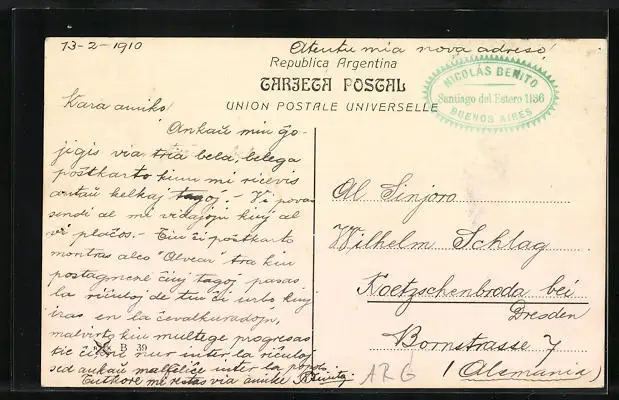 13-2-1910
Atentu mia nova adreso!
Republica Argentina
TARJETA POSTAL
UNION POSTALE UNIVERSELLE
NICOLÁS BENITO
Santiago del Estero 1186
BUENOS AIRES
Kara amiko!
Ankaŭ min ĝo-
jigis via tria bela, belega
poŝtkarto kiun mi ricevis
antaŭ kelkaj tagoj. - Vi povas
sendi al mi vidaĵojn kiuj al
vi plaĉos. - Tiu ĉi poŝtkarto
montras aleo "Alvear" tra kiu
postagmene ĉiuj tagoj pasas
la riĉuloj de tiu ĉi urbo kiuj
iras en la ĉevalkuradojn,
malvirto kiu multege progresas
tie ĉi ne nur inter la riĉuloj
sed ankaŭ malfeliĉe inter la
Tutkore mi restas via amiko Benito
B 39
Al Sinjoro
Wilhelm Schlag
Koetzschenbroda bei
Dresden
Bornstrasse 7
(Alemania)
ARG